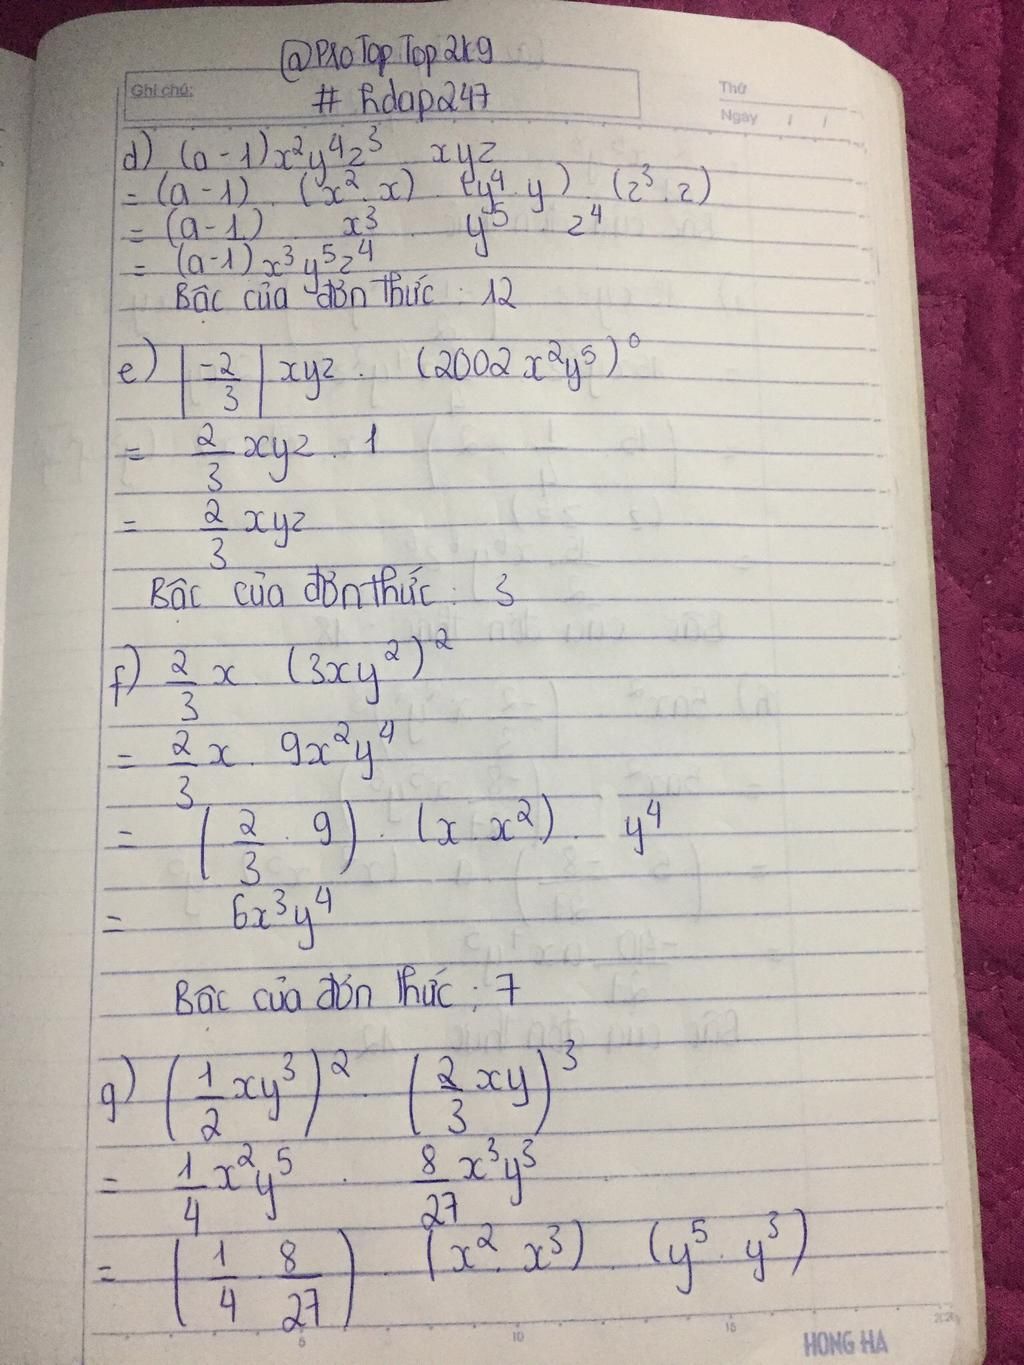 @ProTopTop2k9
Ghi chú:
# hdap247
Thứ
Ngày / /
d) (a-1)x²y⁴z³ . xyz
= (a-1) . (x² . x) . (y⁴ . y) . (z³ . z)
= (a-1) . x³ . y⁵ . z⁴
= (a-1)x³y⁵z⁴
Bậc của đơn thức : 12
e) |-2/3| xyz . (2002x²y⁵)⁰
= 2/3 xyz . 1
= 2/3 xyz
Bậc của đơn thức : 3
f) 2/3 x . (3xy²)²
= 2/3 x . 9x²y⁴
= (2/3 . 9) . (x . x²) . y⁴
= 6x³y⁴
Bậc của đơn thức : 7
g) (1/2 xy³)² . (2/3 xy)³
= 1/4 x²y⁵ . 8/27 x³y³
= (1/4 . 8/27) . (x² . x³) . (y⁵ . y³)
5 10 15
HONG HA